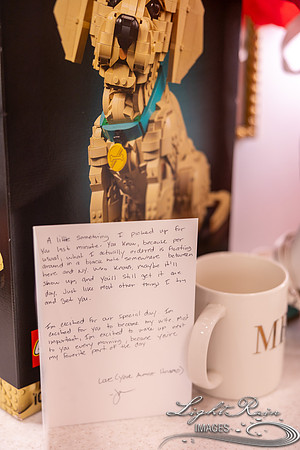 A little something I picked up for
you last minute. You know, because per
usual, what I actually ordered is floating
around in a black hole somewhere between
here and NJ. Who knows, maybe it'll
show up and you'll still get it one
day. Just like most other things I try
and get you.
I'm excited for our special day. I'm
excited for you to become my wife. Most
important, I'm excited to wake up next
to you every morning, because you're
my favorite part of the day.
Love (your Almost Husband)
ME
LightRain
IMAGES